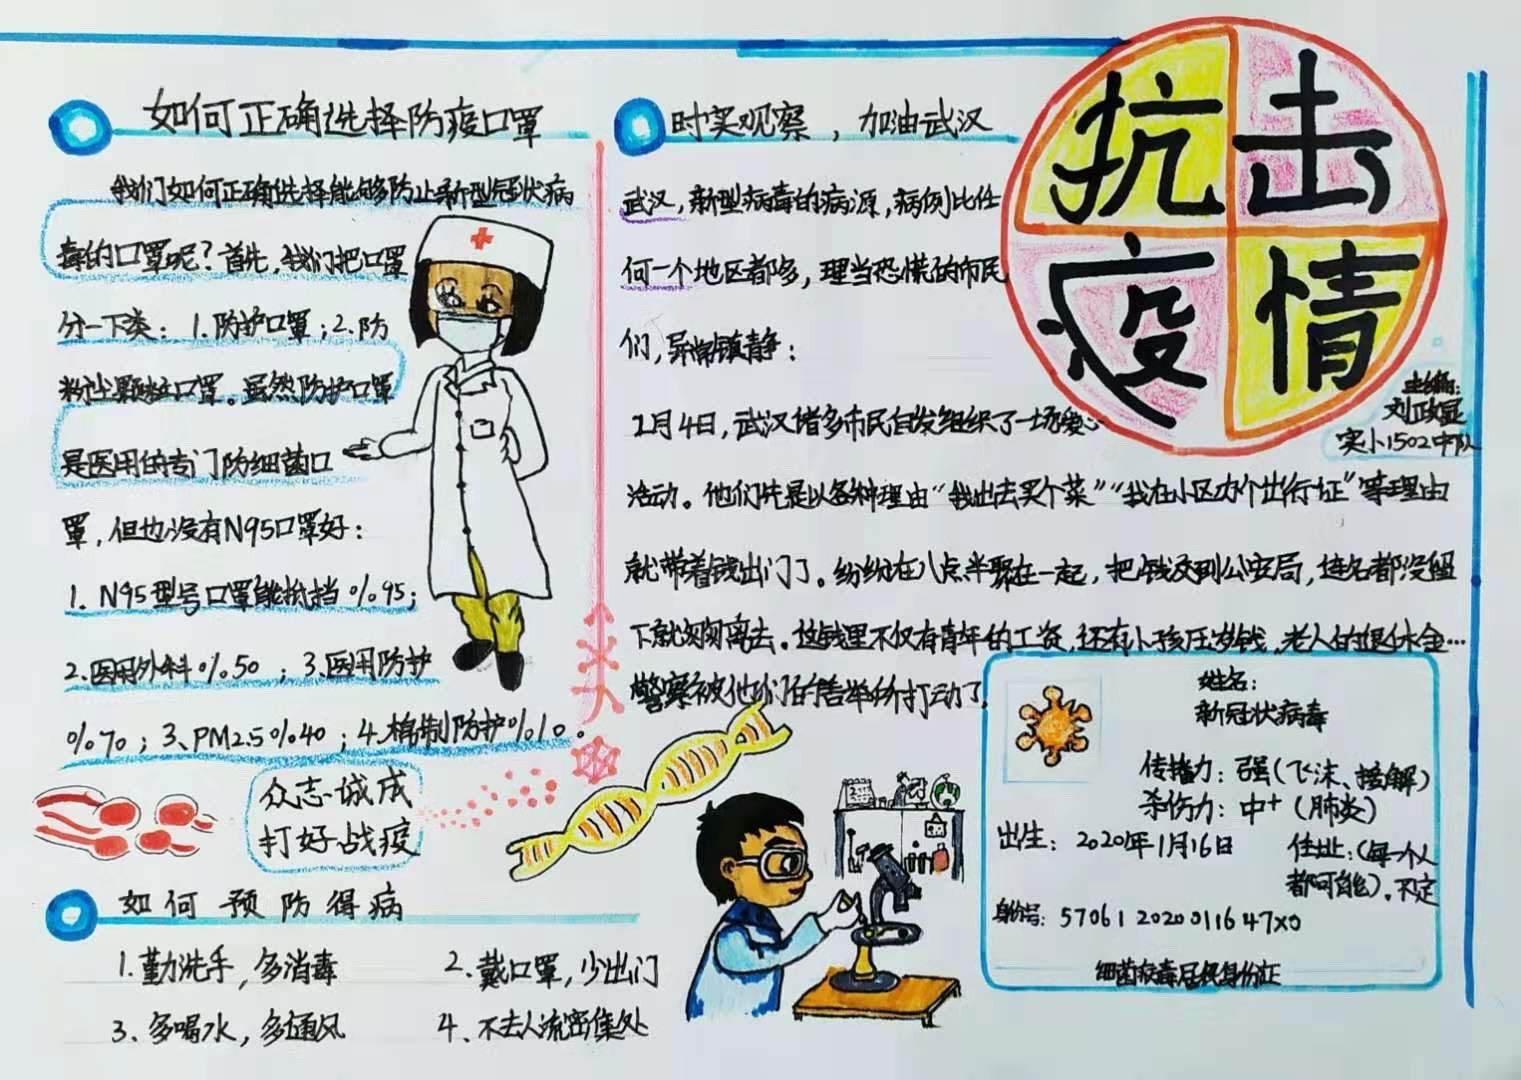 如何正确选择防疫口罩
我们如何正确选择能够防止新型冠状病
毒的口罩呢？首先，我们把口罩
分一下类：1.防护口罩；2.防
粉尘颗粒口罩。虽然防护口罩
是医用的专门防细菌口
罩，但也没有N95口罩好：
1. N95型号口罩能抵挡%95；
2.医用外科%50；3.医用防护
%70；3、PM2.5%40；4.棉制防护%10。
众志诚成
打好战疫
如何预防得病
1.勤洗手，多消毒
2.戴口罩，少出门
3、多喝水，多通风
4、不去人流密集处
时实观察，加油武汉
武汉，新型病毒的病源，病例比任
何一个地区都多，理当恐慌的市民
们，异常镇静：
2月4日，武汉诸多市民自发组织了一场爱心
活动。他们先是以各种理由“我出去买个菜”“我在小区办个出行证”等理由
就带着钱出门了。纷纷在八点半聚在一起，把钱交到公安局，连名都没留
下就匆匆离去。这钱里不仅有青年的工资，还有小孩压岁钱，老人的退休金…
警察被他们的善举所打动了。
抗击
疫情
主编：
刘正
实小1502中队
姓名：
新冠状病毒
传播力：强（飞沫、接解）
杀伤力：中+（肺炎）
出生：2020年1月16日
住址：（每一个人
都可能）。不定
身份号：57061 20200116 47X0
细菌病毒居民身份证